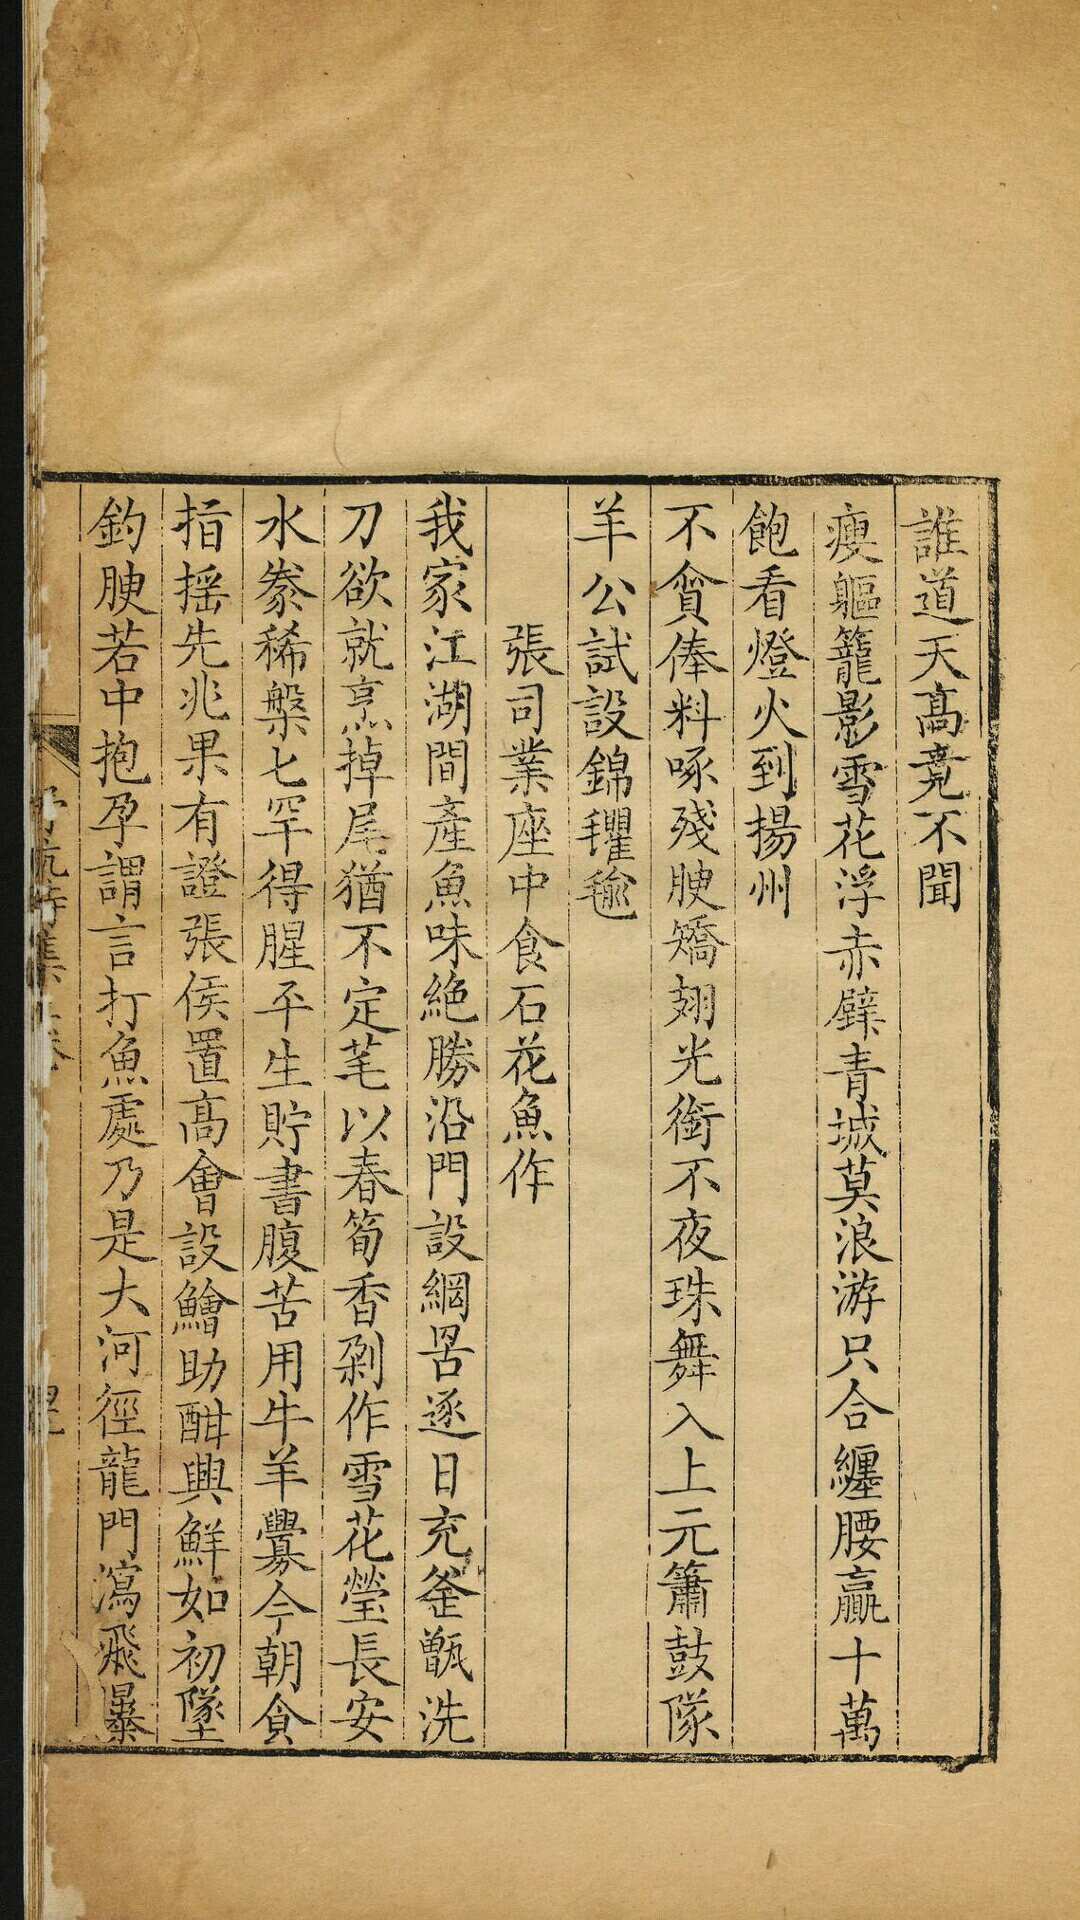 誰道天高竟不聞
瘦軀籠影雪花浮赤壁青城莫浪游只合纏腰贏十萬
飽看燈火到揚州
不貪俸料啄殘腴矯翅光銜不夜珠舞入上元簫鼓隊
羊公試設錦氍毹
張司業座中食石花魚作
我家江湖間產魚味絕勝沿門設網罟逐日充釜甑洗
刀欲就烹掉尾猶不定芼以春筍香剁作雪花瑩長安
水㳟稀槃七罕得腥平生貯書腹苦用牛羊釁今朝食
指搖先兆果有證張侯置高會設鱠助酣興鮮如初墜
釣腴若中抱孕謂言打魚處乃是大河徑龍門瀉飛瀑